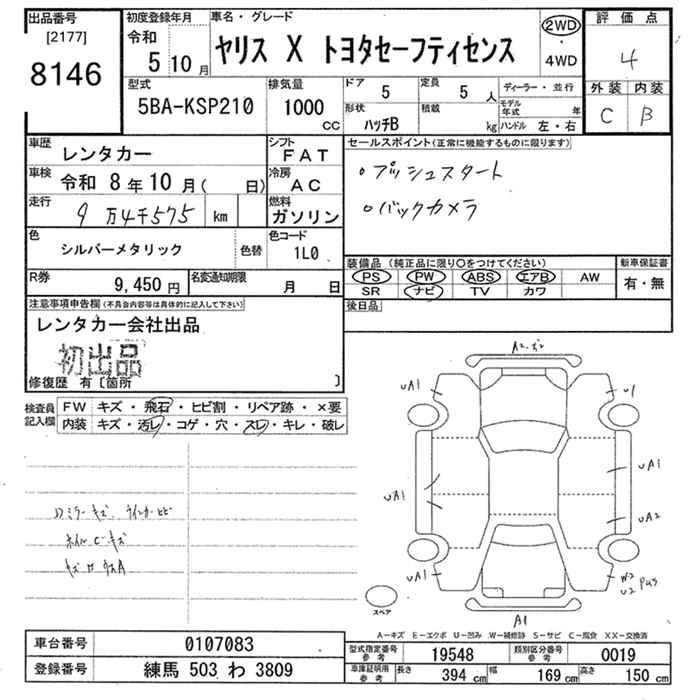 出品番号
[2177]
8146
初度登録年月
令和
5 10月
車名・グレード
ヤリス X トヨタセーフティセンス
2WD
・
4WD
評価点
4
外装 内装
C B
型式
5BA-KSP210
排気量
1000
CC
ドア
5
定員
5 人
形状
ハッチB
積載
kg
ディーラー・並行
モデル年式 年
ハンドル 左・右
車歴
レンタカー
シフト
F A T
車検
令和 8年10月( 日)
冷房
A C
走行
9万4千575 km
燃料
ガソリン
色
シルバーメタリック
色替
色コード
1L0
R券
9,450 円
名変通知期限
月 日
セールスポイント(正常に機能するものに限ります)
○プッシュスタート
○バックカメラ
装備品(純正品に限り○をつけてください)
PS PW ABS エアB AW
SR ナビ TV カワ
新車保証書
有・無
後日品
注意事項申告欄(不具合内容等は具体的に記入して下さい)
レンタカー会社出品
初出品
修復歴 有〔箇所 〕
検査員記入欄
FW キズ・飛石・ヒビ割・リペア跡・×要
内装 キズ・汚レ・コゲ・穴・スレ・キレ・破レ
ミラーキズ ウインカーヒビ
ホイルCキズ
UA1
U1
UA1
UA1
UA2
UA1
W2
A1
スペア
A-キズ E-エクボ U-凹み W-補修跡 S-サビ C-腐食 XX-交換済
車台番号
0107083
登録番号
練馬 503 わ 3809
型式指定番号
参考
19548
類別区分番号
参考
0019
車庫証明用
参考
長さ
394 cm
幅
169 cm
高さ
150 cm